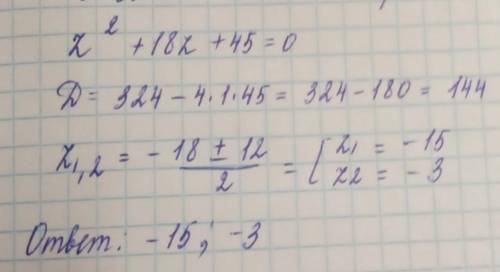 z² + 18z + 45 = 0
D = 324 - 4·1·45 = 324 - 180 = 144
z₁,₂ = - 18 ± 12 / 2 = [ z₁ = -15
z2 = -3
Ответ: -15; -3